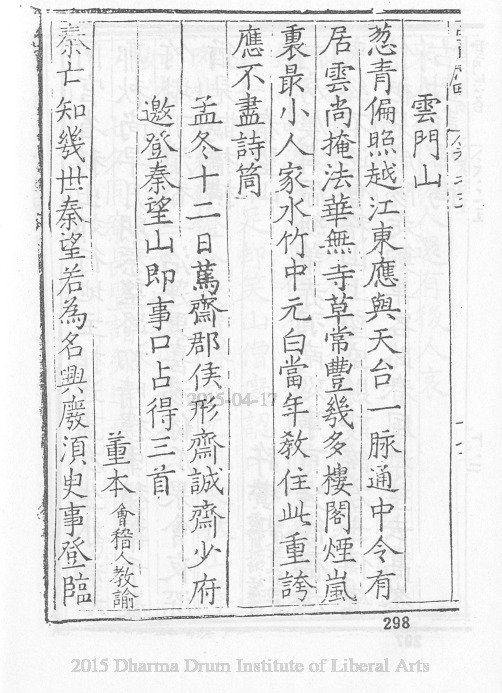 雲門山
葱青偏照越江東應與天台一脉通中令有
居雲尚掩法華無寺草常豐幾多樓閣煙嵐
裏最小人家水竹中元白當年教住此重誇
應不盡詩筒
孟冬十二日薦齋郡侯形齋誠齋少府
邀登秦望山即事口占得三首
董本會稽人教諭
秦亡知幾世秦望若為名興廢湏史事登臨
298
2015-04-17
2015 Dharma Drum Institute of Liberal Arts